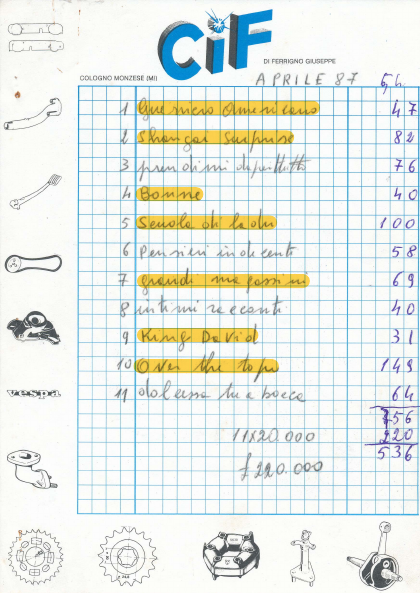 CiF
DI FERRIGNO GIUSEPPE
COLOGNO MONZESE (MI)
APRILE 87
1 Americano 47
2 Shangai Surprise 82
3 prendimi 76
4 40
5 Scuola di ladri 100
6 Pensieri indecenti 58
7 grandi magazzini 69
8 intimi racconti 40
9 King David 31
10 Over the top 149
11 tua bocca 64
756
11X20.000 220
536
£220.000
vespa